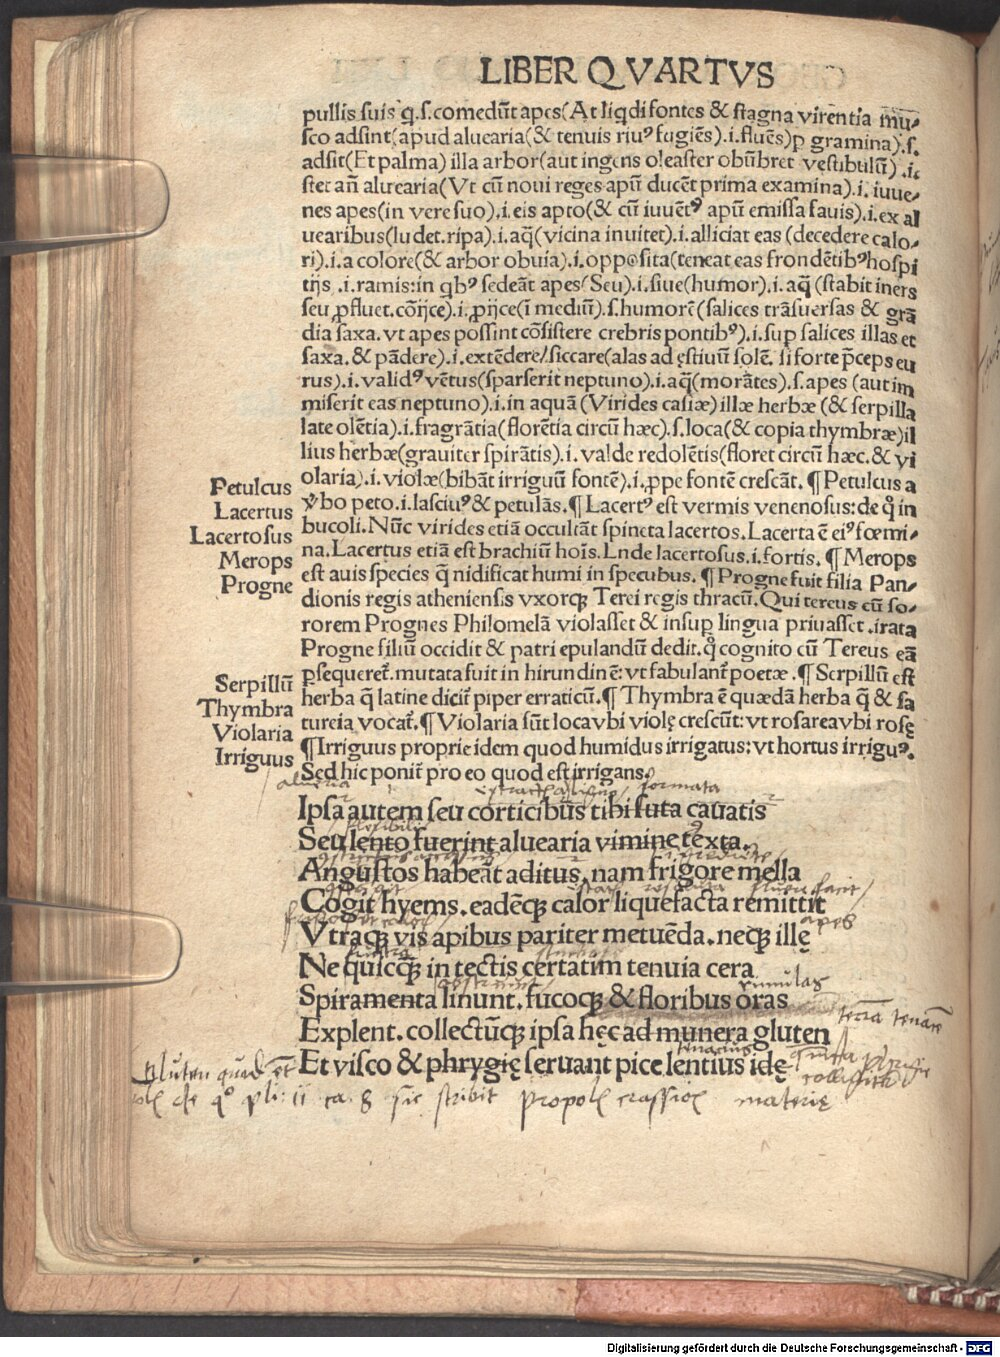 LIBER QVARTVS
pullis suis q̃.s.comedũt apes(At liq̃di fontes & stagna virentia mu⸗
sco adsint(apud aluearia(& tenuis riuꝰ fugiẽs).i.fluẽs)ꝑ gramina).s.
adsit(Et palma) illa arbor(aut ingens oleaster obũbret vestibulũ) .i.
stet añ aluearia(Vt cũ noui reges apũ ducẽt prima examina).i.iuue⸗
nes apes(in vere suo).i.eis apto(& cũ iuuẽtꝰ apũ emissa fauis).i.ex al
uearibus(ludet.ripa).i.aq̃(vicina inuitet).i.alliciat eas (decedere calo⸗
ri).i.a colore(& arbor obuia).i.opposita(teneat eas frondẽtibꝰ hospi
tijs .i.ramis:in qbꝰ sedeãt apes(Seu).i.siue(humor).i.aq̃ (stabit iners
seu ꝓfluet.cõijce).i.ꝓijce(ĩ mediũ).s.humorẽ(salices trãsuersas & grã
dia saxa.vt apes possint cõsistere crebris pontibꝰ).i.sup salices illas et
saxa.& pãdere).i.extẽdere/siccare(alas ad ęstiuũ solẽ. si forte p̃ceps eu
rus).i.validꝰ vẽtus(sparserit neptuno).i.aq̃(morãtes).s.apes (aut im
miserit eas neptuno).i.in aquã (Virides casiæ) illæ herbæ (& serpilla
late olẽtia).i.fragrãtia(florẽtia circũ hæc).s.loca(& copia thymbræ)il
lius herbæ(grauiter spirãtis).i.valde redolẽtis(floret circũ hæc.& vi
olaria).i.violæ(bibãt irriguũ fontẽ).i.ꝓpe fontẽ crescãt. ¶Petulcus a
Petulcus
v̾bo peto.i.lasciuꝰ & petulãs.¶Lacertꝰ est vermis venenosus:de q̊ in
Lacertus
bucoli.Nũc virides etiã occultãt spineta lacertos.Lacerta ẽ eiꝰ fœmi⸗
Lacertosus
na.Lacertus etiã est brachiũ hoĩs.Lnde lacertosus.i.fortis.¶Merops
Merops
est auis species q̃ nidificat humi in specubus.¶Progne fuit filia Pan⸗
Progne
dionis regis atheniensis vxorqꝫ Terei regis thracũ.Qui tereus cũ so⸗
rorem Prognes Philomelã violasset & insuꝑ lingua priuasset .irata
Progne filiũ occidit & patri epulandũ dedit.q̊ cognito cũ Tereus eã
ꝑsequeret̃.mutata fuit in hirundinẽ:vt fabulant̃ poetæ.¶Serpillũ est
Serpillũ
herba q̃ latine dicit̃ piper erraticũ.¶Thymbra ẽ quædã herba q̃ & sa
Thymbra
tureia vocat̃.¶Violaria sũt loca vbi violę crescũt:vt rosarea vbi rosę
Violaria
¶Irriguus proprie idem quod humidus irrigatus:vt hortus irriguꝰ.
Irriguus
Sed hic ponit̃ pro eo quod est irrigans.
aluearia formata
Ipsa autem seu corticibus tibi suta cauatis
Seu lento fuerint aluearia vimine texta.
Angustos habeãt aditus.nam frigore mella
Cogit hyems.eadẽqꝫ calor liquefacta remittit
apes
Vtraqꝫ vis apibus pariter metuẽda.neqꝫ illę
Ne quicq̃ꝫ in tectis certatim tenuia cera
rimulas
Spiramenta linunt.fucoqꝫ & floribus oras
Explent.collectũqꝫ ipsa hęc ad munera gluten
tenacius
Et visco & phrygię seruant pice lentius idę
stribit propol crassior materię
Digitalisierung gefördert durch die Deutsche Forschungsgemeinschaft - DFG